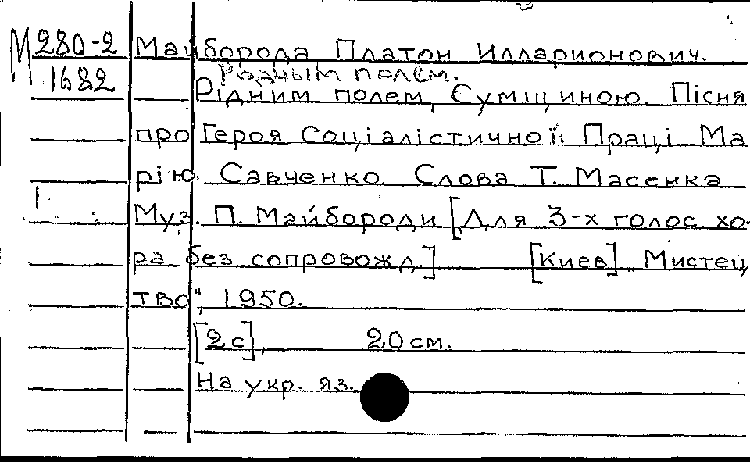 М 280-2 Майборода Платон Илларионович.
1682 Родным полем.
Рідним полем, Сумщиною. Пісня
про Героя Соціалістичної Праці Ма
рію Савченко. Слова Т. Масенка
Муз. П. Майбороди [Для 3-х голос хо-
ра без сопровожд.] [Киев] Мистец
тво", 1950.
[2 с]. 20 см.
На укр. яз.